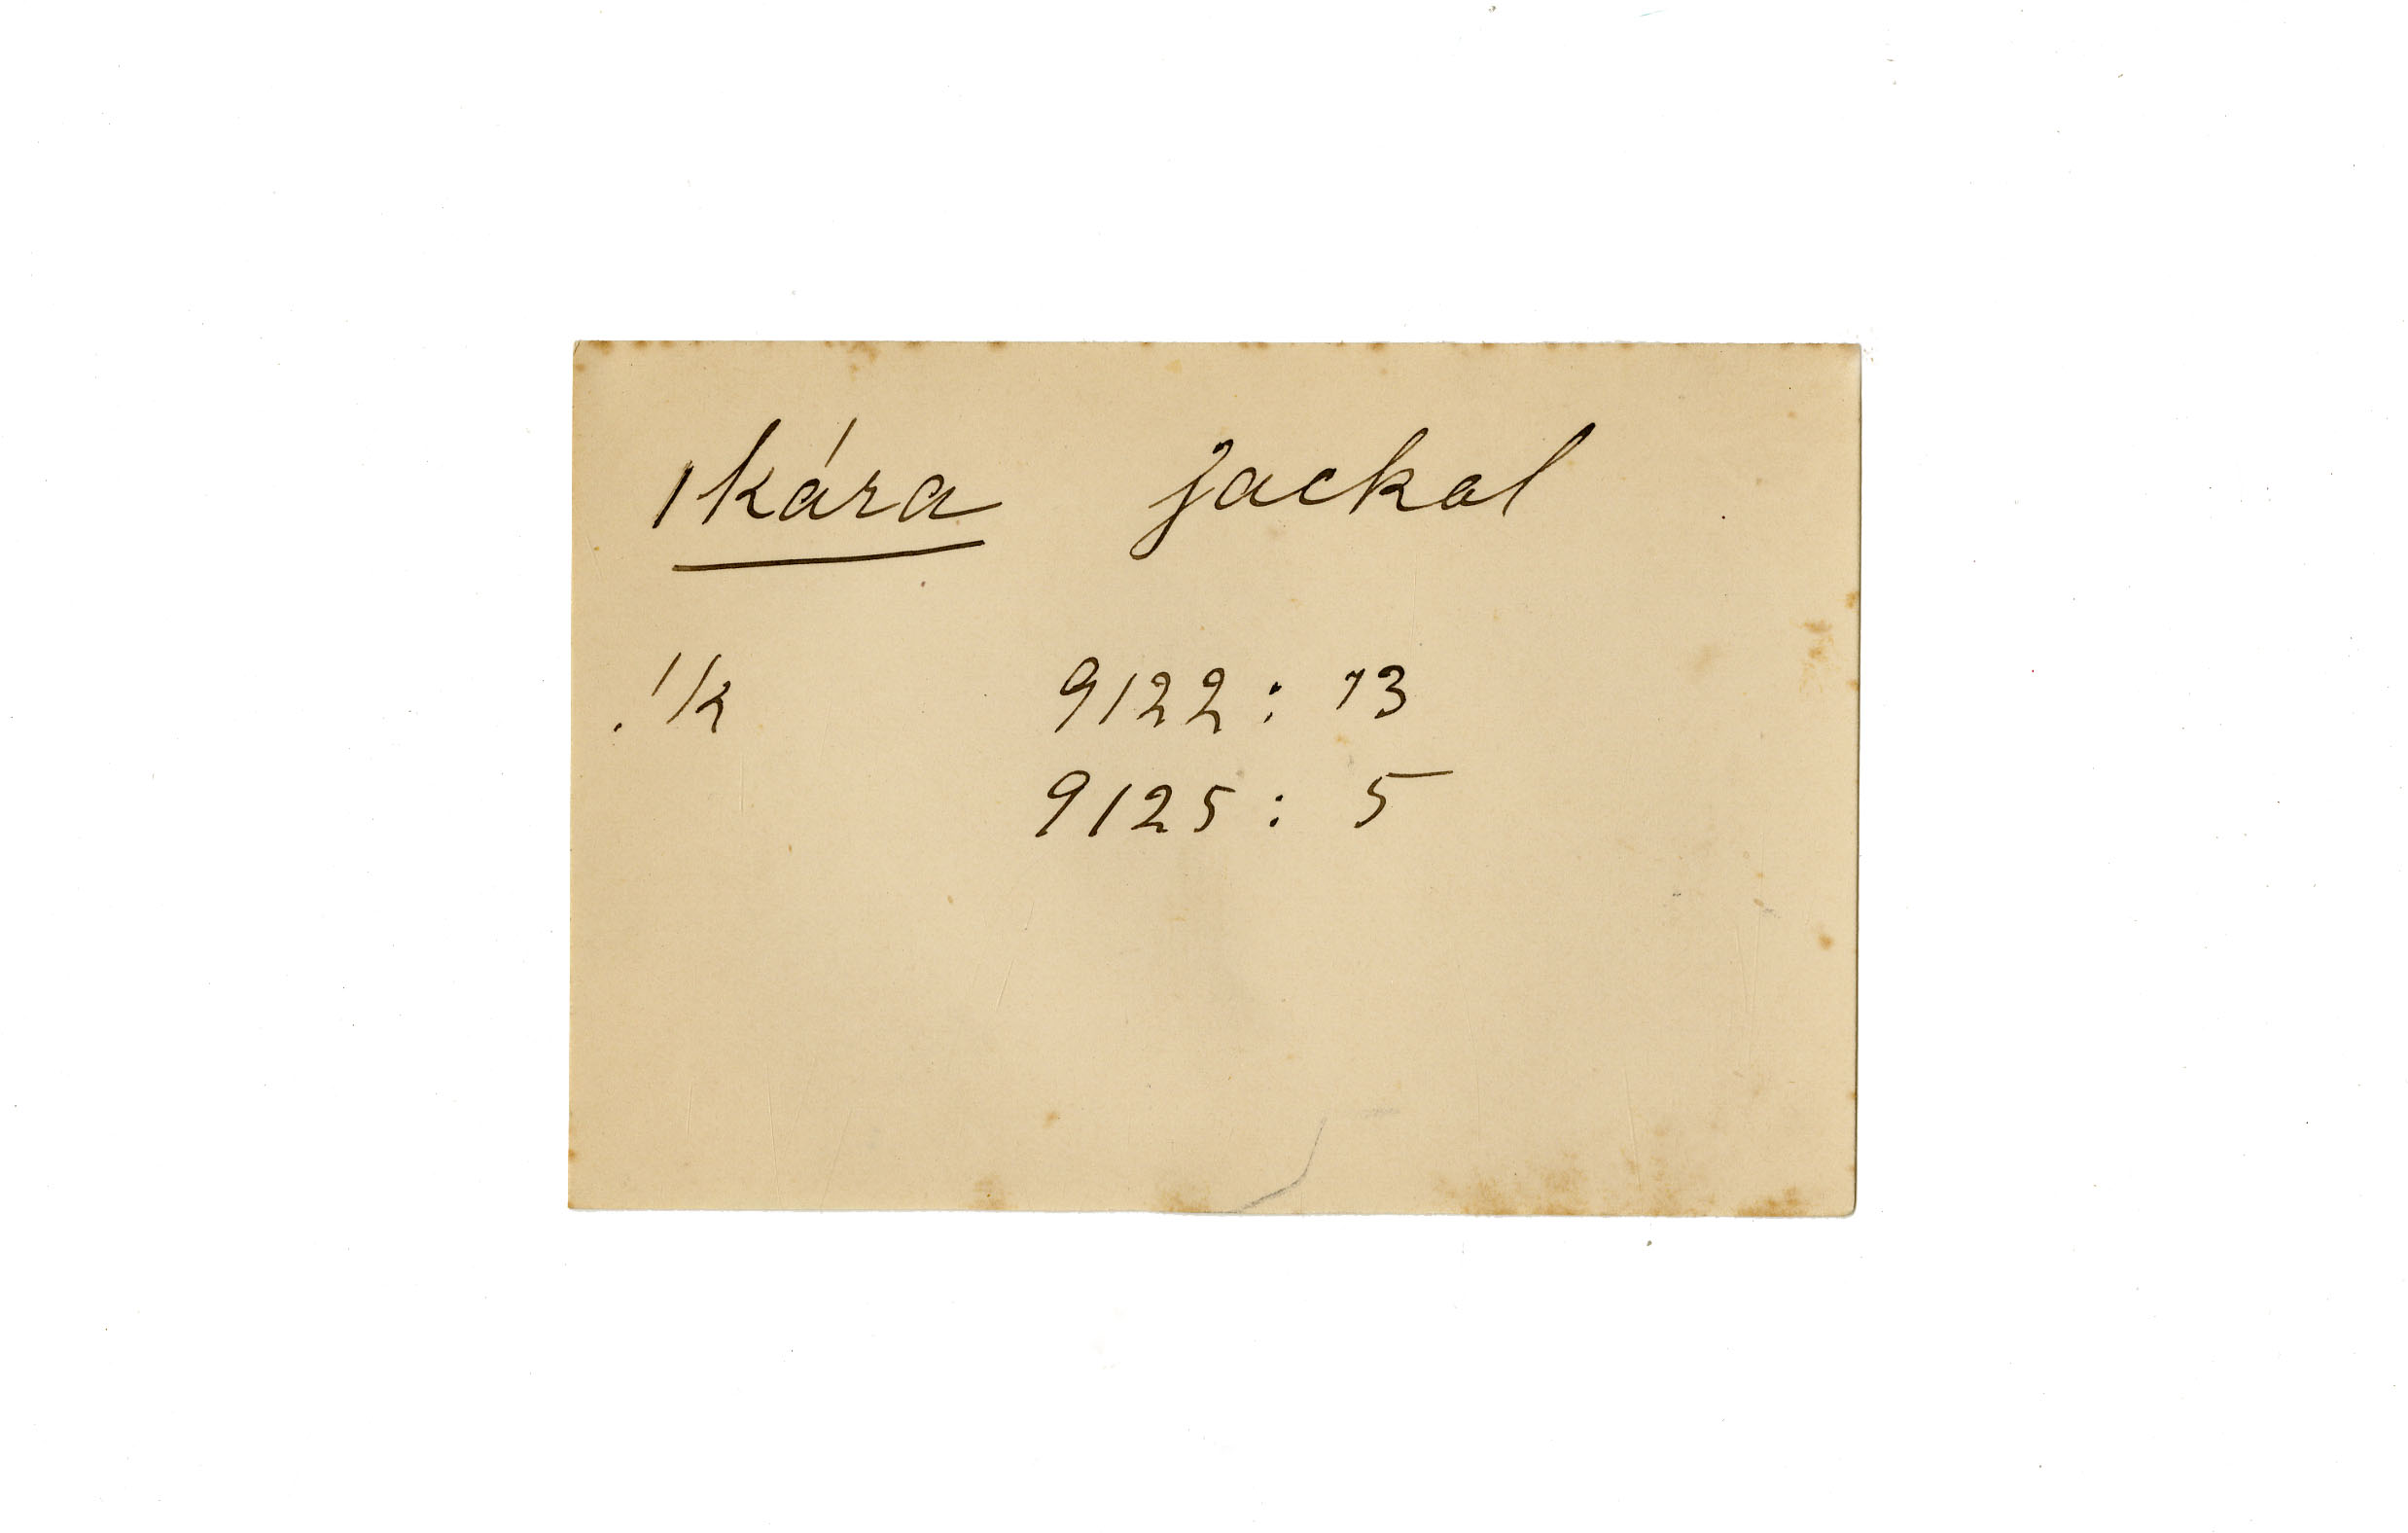 ǀkára jackal
!k 9122: 13
9125: 5